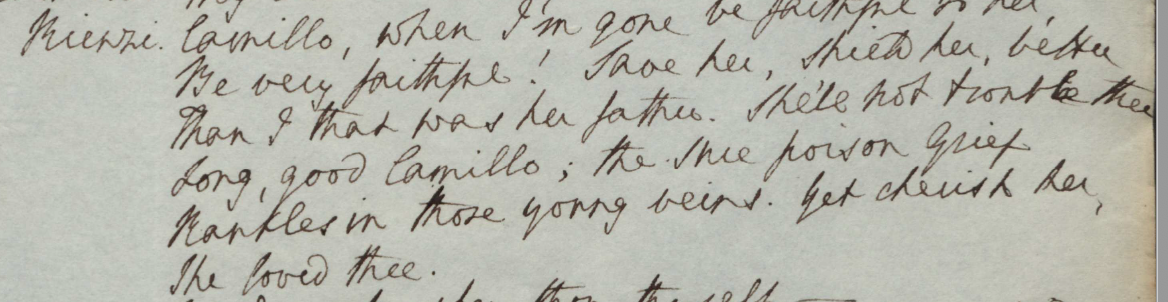 Rienzi. Camillo, when I'm gone be faithful to her,
Be very faithful! Save her, shield her, better
Than I that was her father. She'll not trouble thee
Long, good Camillo; the slow poison Grief
Rankles in those young veins. Yet cherish her,
She loved thee.